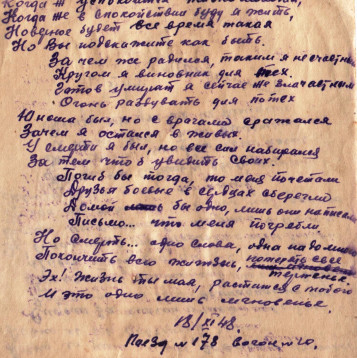 Когда ж
Когда же в спокойствии буду я жить,
Наверное будет все время такая
Но Вы подскажите как быть.
За чем же родился, таким я не счастным
Кругом я виновник для тех.
Готов умирать я сейчас же
Огонь разбувать для потех
Юноша был, но с врагами сражался
Зачем я остался в живых.
У смерти я был, но все сил набирался
За тем чтоб увидить своих.
Погиб бы тогда, то меня почетом
Друзья боевые в сердцах сберегли
Домой бы одно, лишь они написали
Письмо... что меня погребли.
Но смерть... одно слова, одна
Покончить всю жизнь, потерять свое
терпенье.
Эх! Жизнь ты моя, растится с тобою
И это одно лишь мгновенье.
18/XI 48.
Поезд № 178 вагон №